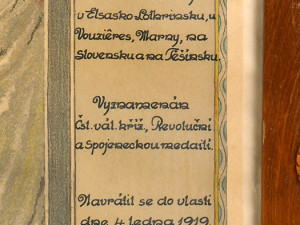 v Elsasko Lothrinsku, u
Vouziéres, Marny, na
Slovensku a na Těšínsku.
Vyznamenán
Čsl. vál. kříž, Revoluční
a spojeneckou medailí.
Navrátil se do vlasti
dne 4 ledna 1919